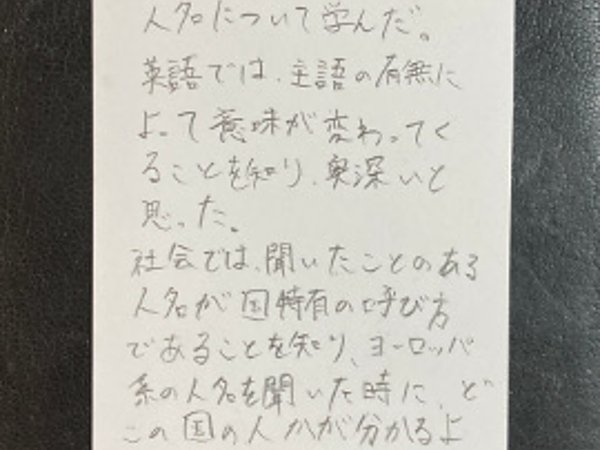 人名について学んだ。
英語では、主語の有無に
よって意味が変わってく
ることを知り、奥深いと
思った。
社会では、聞いたことのある
人名が国特有の呼び方
であることを知り、ヨーロッパ
系の人名を聞いた時に、ど
この国の人かが分かるよ